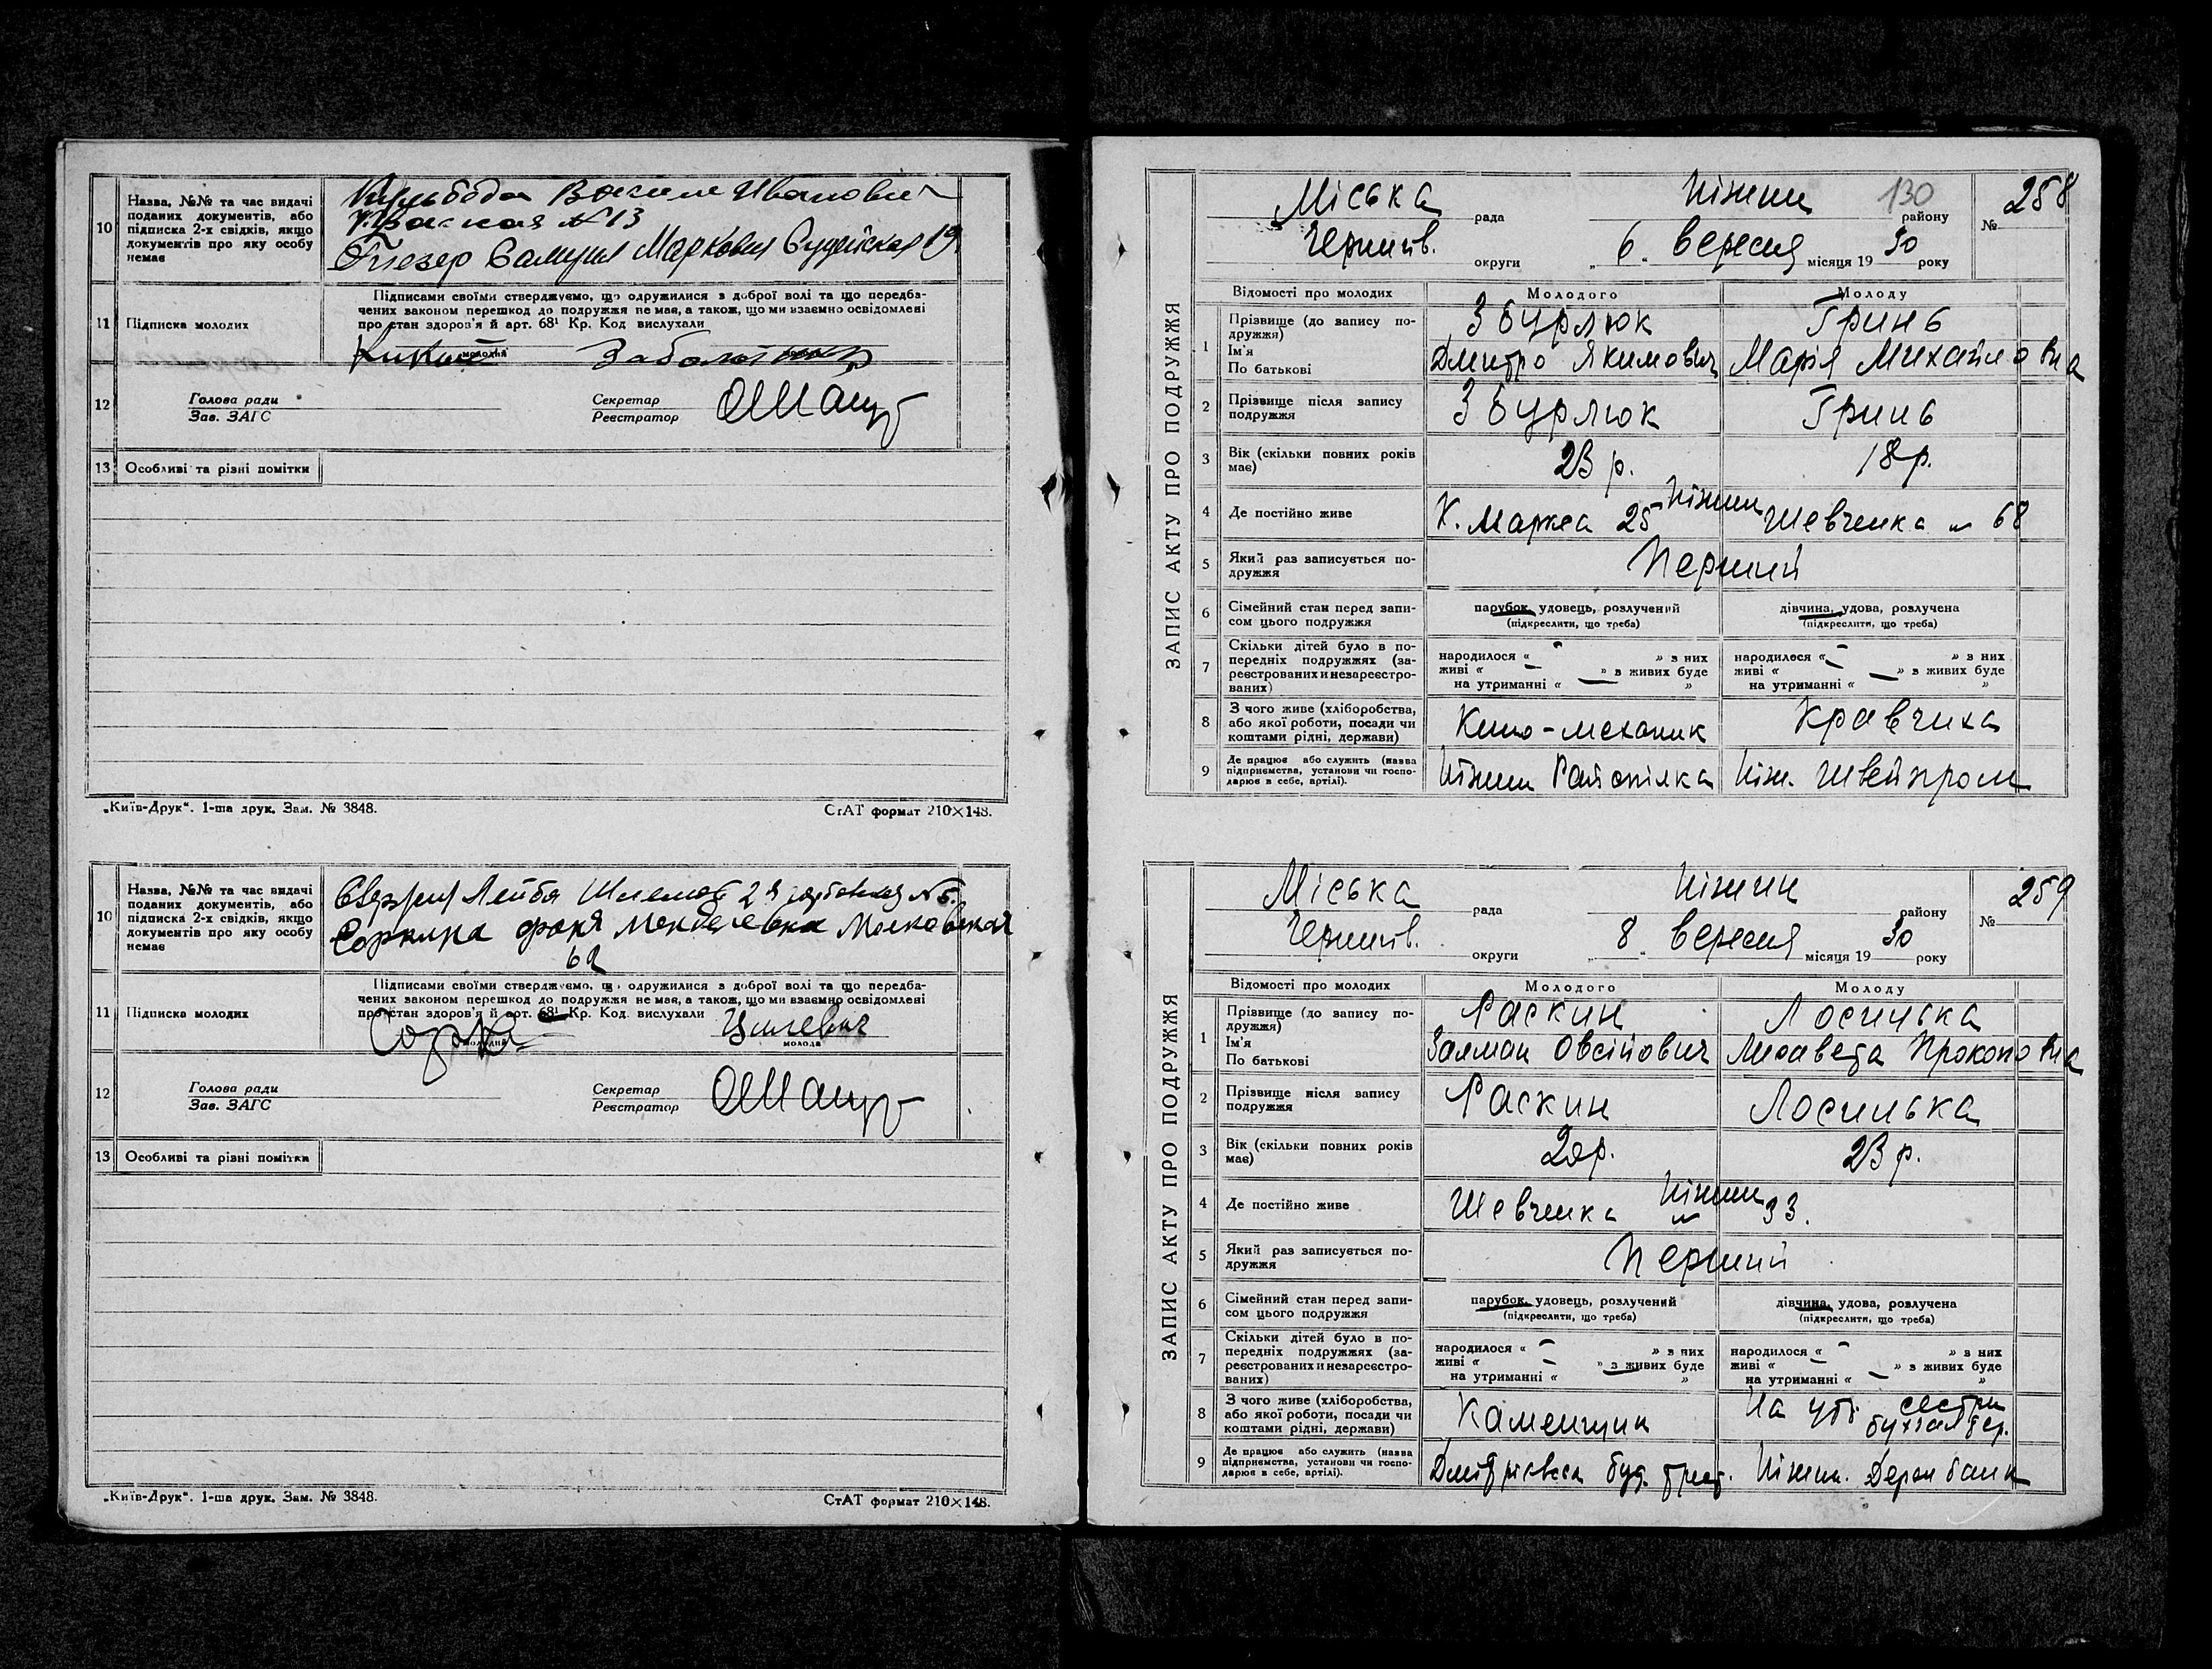 10
Назва, №№ та час видачі
поданих документів, або
підписка 2-х свідків, якщо
документів про яку особу
немає
Иванович
№ 13
Самуил Маркович 19
11 Підписка молодих
Підписами своїми стверджуємо, що одружилися з доброї волі та що передба-
чених законом перешкод до подружжя не має, а також, що ми взаємно освідомлені
про стан здоров'я й арт. 68¹ Кр. Код вислухали
12
Голова ради
Зав. ЗАГС
Секретар
Реєстратор
13 Особливі та різні помітки
„Київ-Друк“. 1-ша друк. Зам. № 3848.
СтАТ формат 210×148.
10
Назва, №№ та час видачі
поданих документів, або
підписка 2-х свідків, якщо
документів про яку особу
немає
Лейба № 5.
Соркина Фаня Менделевна Московская
62
11 Підписка молодих
Підписами своїми стверджуємо, що одружилися з доброї волі та що передба-
чених законом перешкод до подружжя не має, а також, що ми взаємно освідомлені
про стан здоров'я й арт. 68¹ Кр. Код. вислухали
молода
12
Голова ради
Зав. ЗАГС
Секретар
Реєстратор
13 Особливі та різні помітки
„Київ-Друк“. 1-ша друк. Зам. № 3848.
СтАТ формат 210×148.
ЗАПИС АКТУ ПРО ПОДРУЖЖЯ
Міська рада Ніжин 130 району № 258
Черниг. округи „6“ вересня місяця 1930 року
Відомості про молодих Молодого Молоду
1
Прізвище (до запису по-
дружжя)
Ім'я
По батькові
Збурлюк Гринь
Дмитро Якимович Марія Михайловна
2
Прізвище після запису
подружжя
Збурлюк Гринь
3
Вік (скільки повних років
має)
23 р. 18 р.
4 Де постійно живе
К. Маркса 25 Ніжин Шевченка № 68
5
Який раз записується по-
дружжя
Перший
6
Сімейний стан перед запи-
сом цього подружжя
парубок, удовець, розлучений
(підкреслити, що треба)
дівчина, удова, розлучена
(підкреслити, що треба)
7
Скільки дітей було в по-
передніх подружжях (за-
реєстрованих и незареєстро-
ваних)
народилося « – » з них
живі « – » з живих буде
на утриманні « – »
народилося « – » з них
живі « – » з живих буде
на утриманні « »
8
З чого живе (хліборобства,
або якої роботи, посади чи
коштами рідні, держави)
Кино-механик Кравчиха
9
Де працює або служить (назва
підприємства, установи чи госпо-
дарює в себе, артілі).
Ніжин Райспілка Ніж. Швейпром
ЗАПИС АКТУ ПРО ПОДРУЖЖЯ
Міська рада Ніжин району № 259
Черниг. округи „8“ вересня місяця 1930 року
Відомості про молодих Молодого Молоду
1
Прізвище (до запису по-
дружжя)
Ім'я
По батькові
Раскин Лосицька
Залман Овсійович Лисавета Прокоповна
2
Прізвище після запису
подружжя
Раскин Лосицька
3
Вік (скільки повних років
має)
23 р.
4 Де постійно живе
Шевченка Ніжин № 33.
5
Який раз записується по-
дружжя
Перший
6
Сімейний стан перед запи-
сом цього подружжя
парубок, удовець, розлучений
(підкреслити, що треба)
дівчина, удова, розлучена
(підкреслити, що треба)
7
Скільки дітей було в по-
передніх подружжях (за-
реєстрованих и незареєстро-
ваних)
народилося « – » з них
живі « – » з живих буде
на утриманні « »
народилося « – » з них
живі « – » з живих буде
на утриманні « – »
8
З чого живе (хліборобства,
або якої роботи, посади чи
коштами рідні, держави)
Каменщик На утр. сестри
бухгалтер.
9
Де працює або служить (назва
підприємства, установи чи госпо-
дарює в себе, артілі).
буд. трест. Ніжин. Держбанк